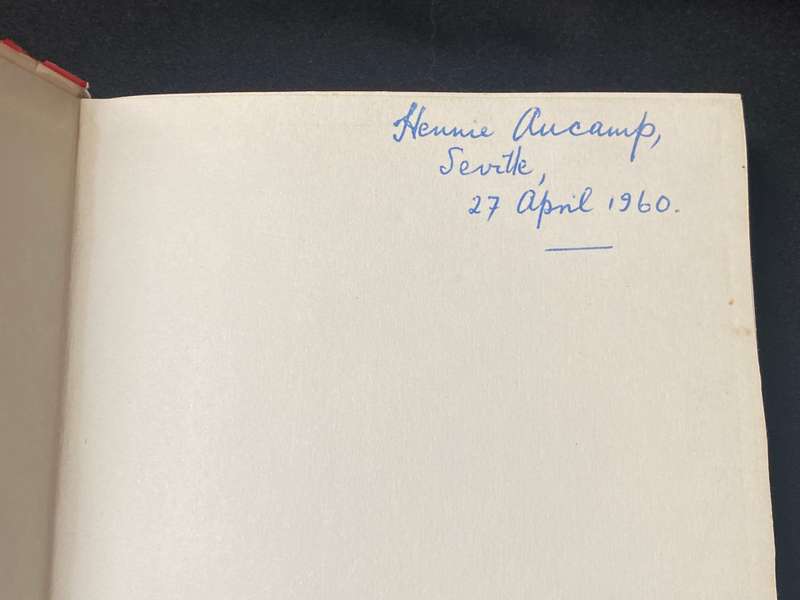 Hennie Aucamp,
Seville,
27 April 1960.